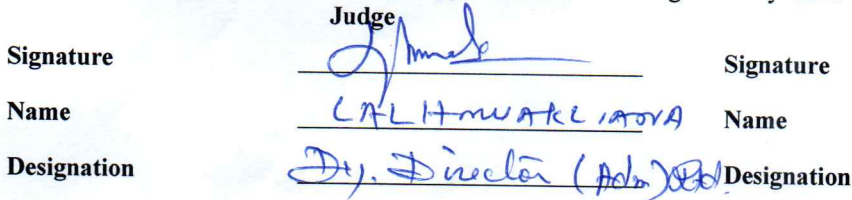 Judge
Signature Signature
Name LALHMUAKLIAOVA Name
Designation Dy. Director (Adm) Designation